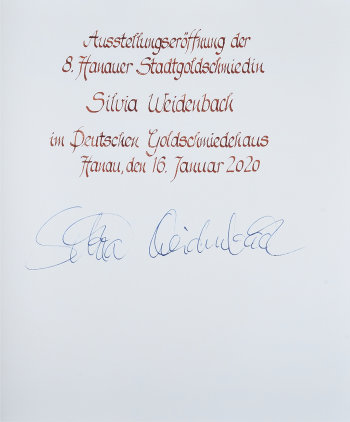 Ausstellungseröffnung der
8. Hanauer Stadtgoldschmiedin
Silvia Weidenbach
im Deutschen Goldschmiedehaus
Hanau, den 16. Januar 2020
Silvia Weidenbach